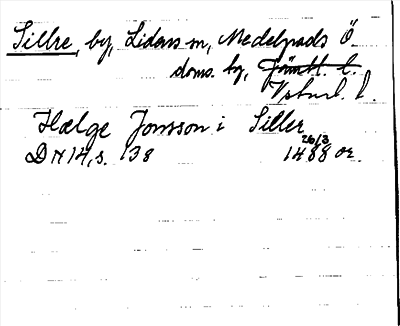 Sillre, by, Lidens sn, Medelpads Ö.
doms. by, Jämtl. l.
Vbnrl. l.
Hælge Jonsson i Siller
26/3
DN 14, s. 138 1488 or.